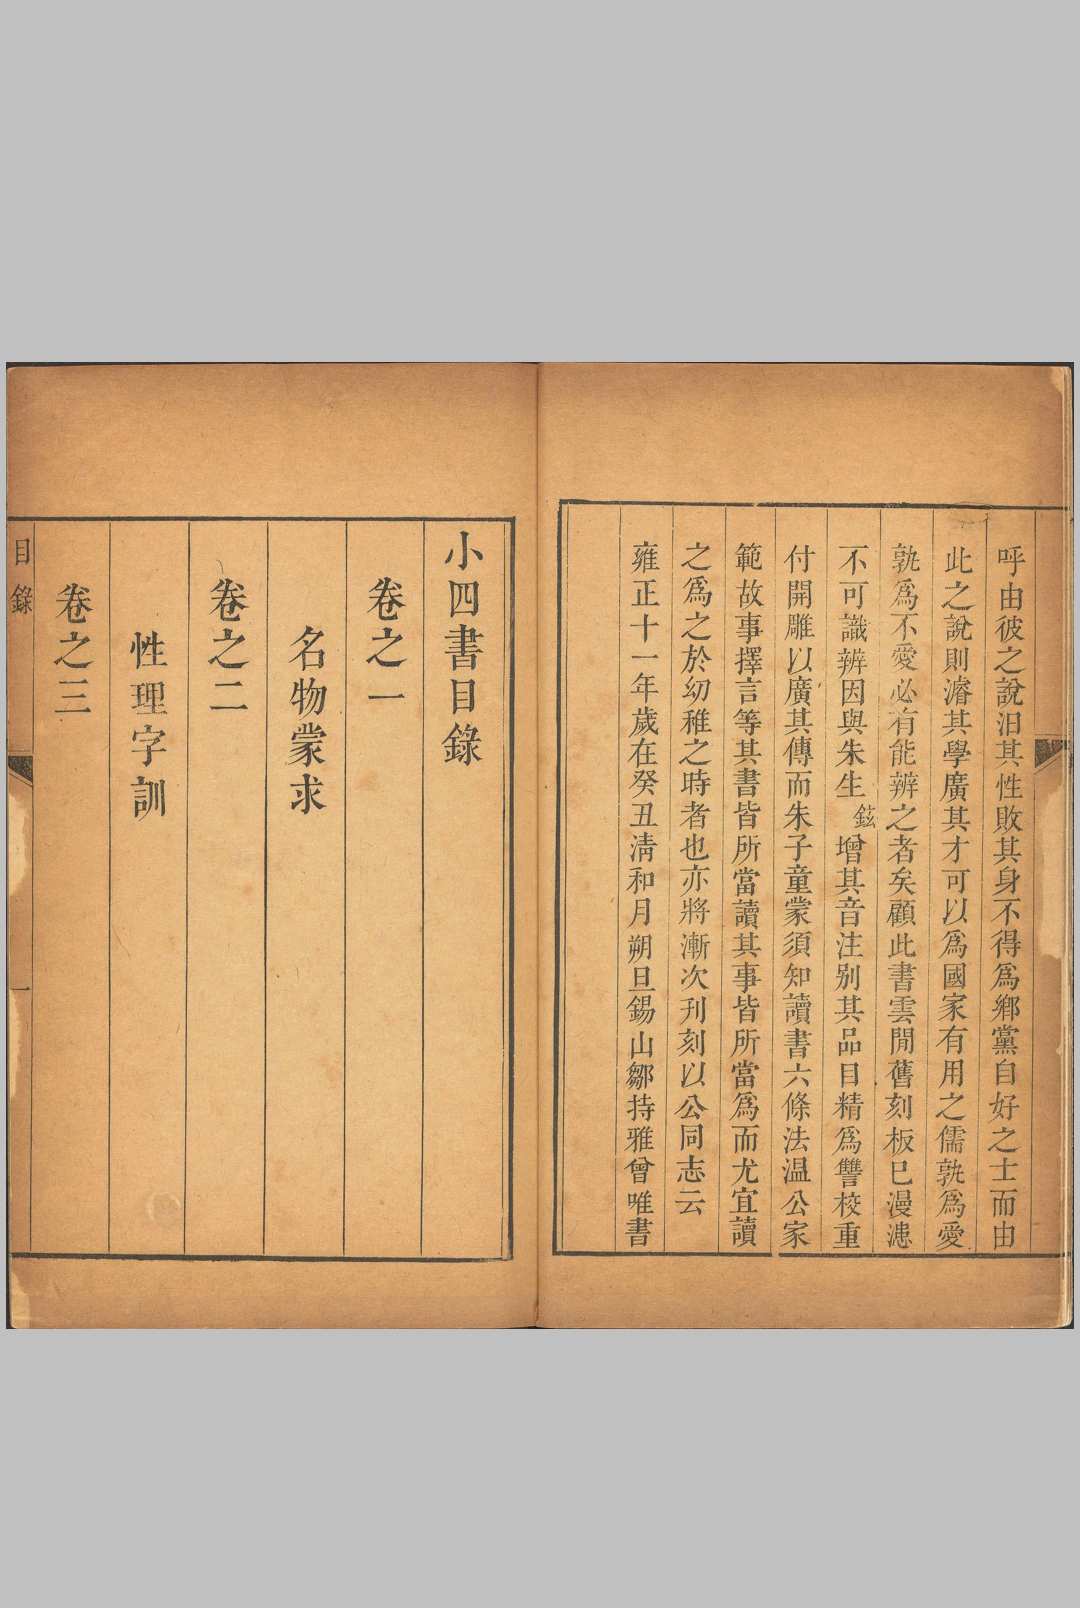 呼由彼之說汨其性敗其身不得爲鄉黨自好之士而由
此之說則濬其學廣其才可以爲國家有用之儒孰爲愛
孰爲不愛必有能辨之者矣顧此書雲閒舊刻板已漫漶
不可識辨因與朱生鉉增其音注别其品目精爲讐校重
付開雕以廣其傳而朱子童蒙須知讀書六條法温公家
範故事擇言等其書皆所當讀其事皆所當爲而尤宜讀
之爲之於幼稚之時者也亦將漸次刋刻以公同志云
雍正十一年歲在癸丑清和月朔旦錫山鄒持雅曾唯書
小四書目錄
卷之一
名物蒙求
卷之二
性理字訓
卷之三
目錄
一